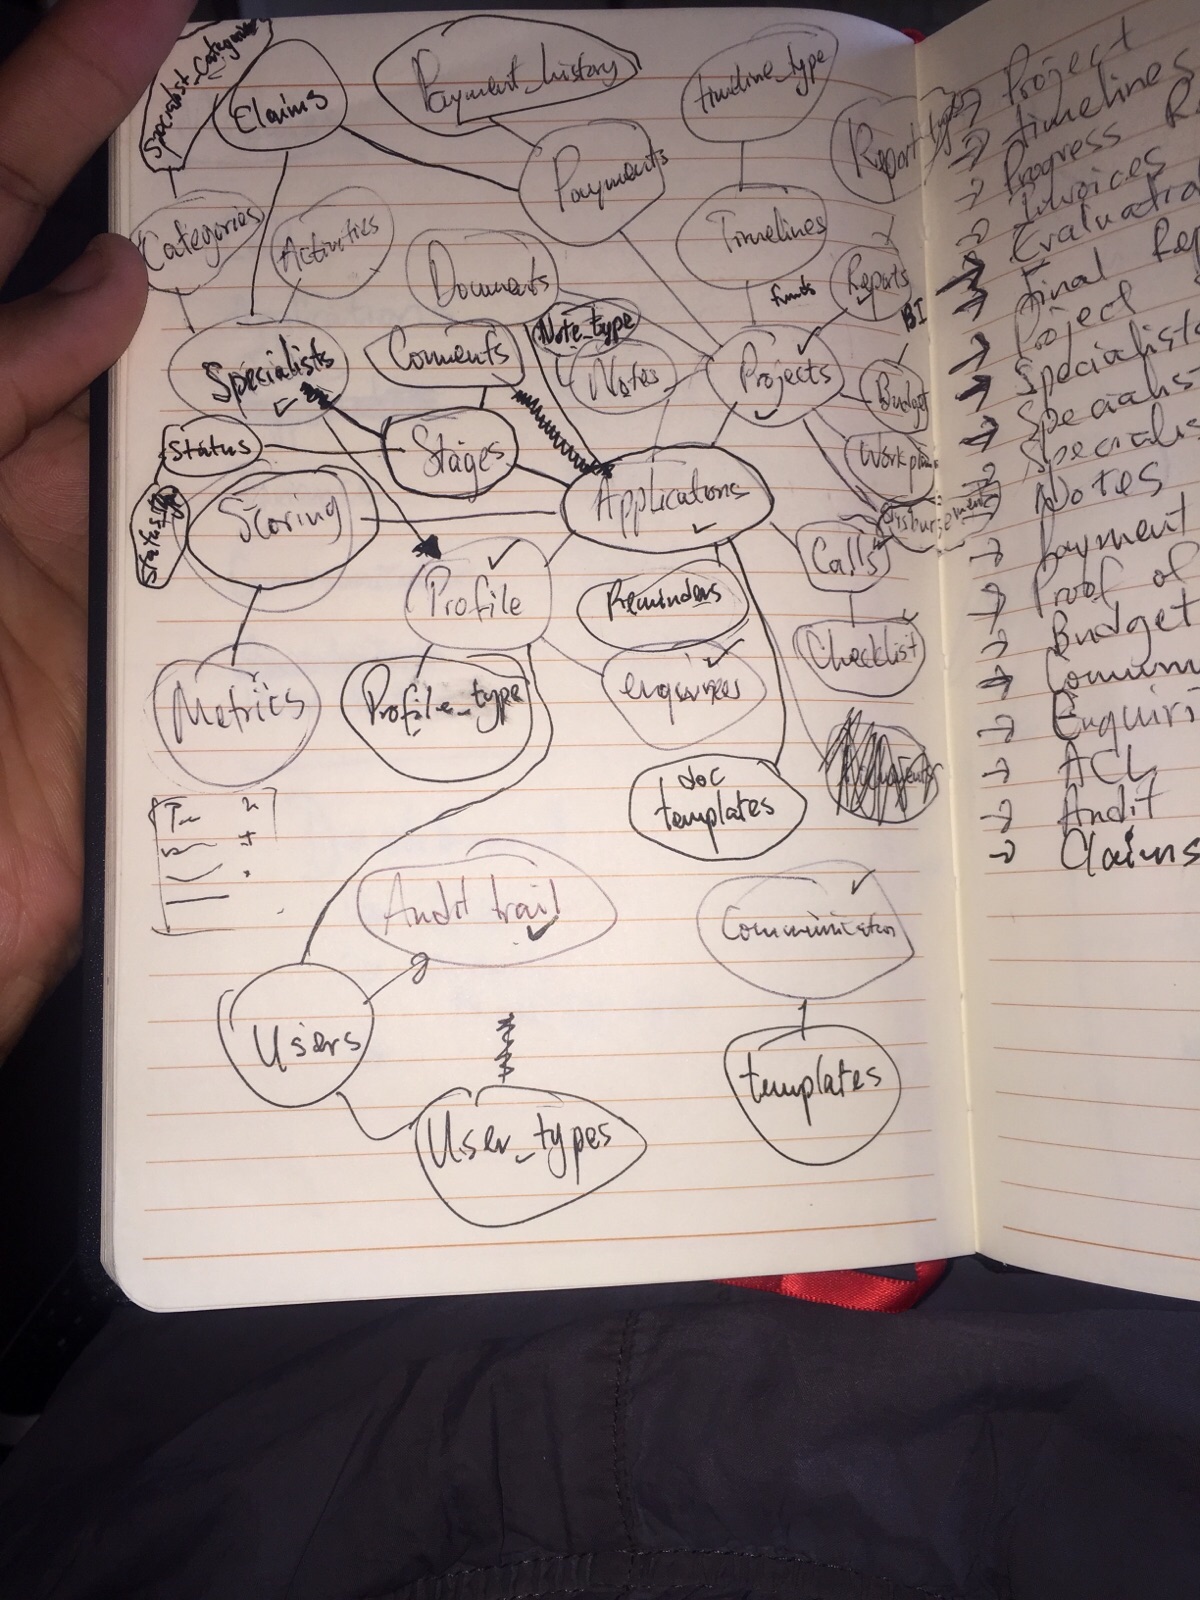 Specialist_Categories
Claims
Payment_history
timeline_type
Report type
Payments
Categories
Activities
Timelines
Documents
funds
Reports
BI
Note_type
Specialists
Comments
Notes
Projects
Budget
Status
Stages
Workplans
Scoring
Applications
Calls
Profile
Reminders
Checklist
Metrics
Profile_type
enquiries
doc
templates
Audit trail
Communication
Users
templates
User_types
→ Project
→ timelines
→ Progress
→ Invoices
→ Final
→ Project
→ Specialists
→ Notes
→ Payment
→ Proof of
→ Budget
→ ACL
→ Audit
→ Claims